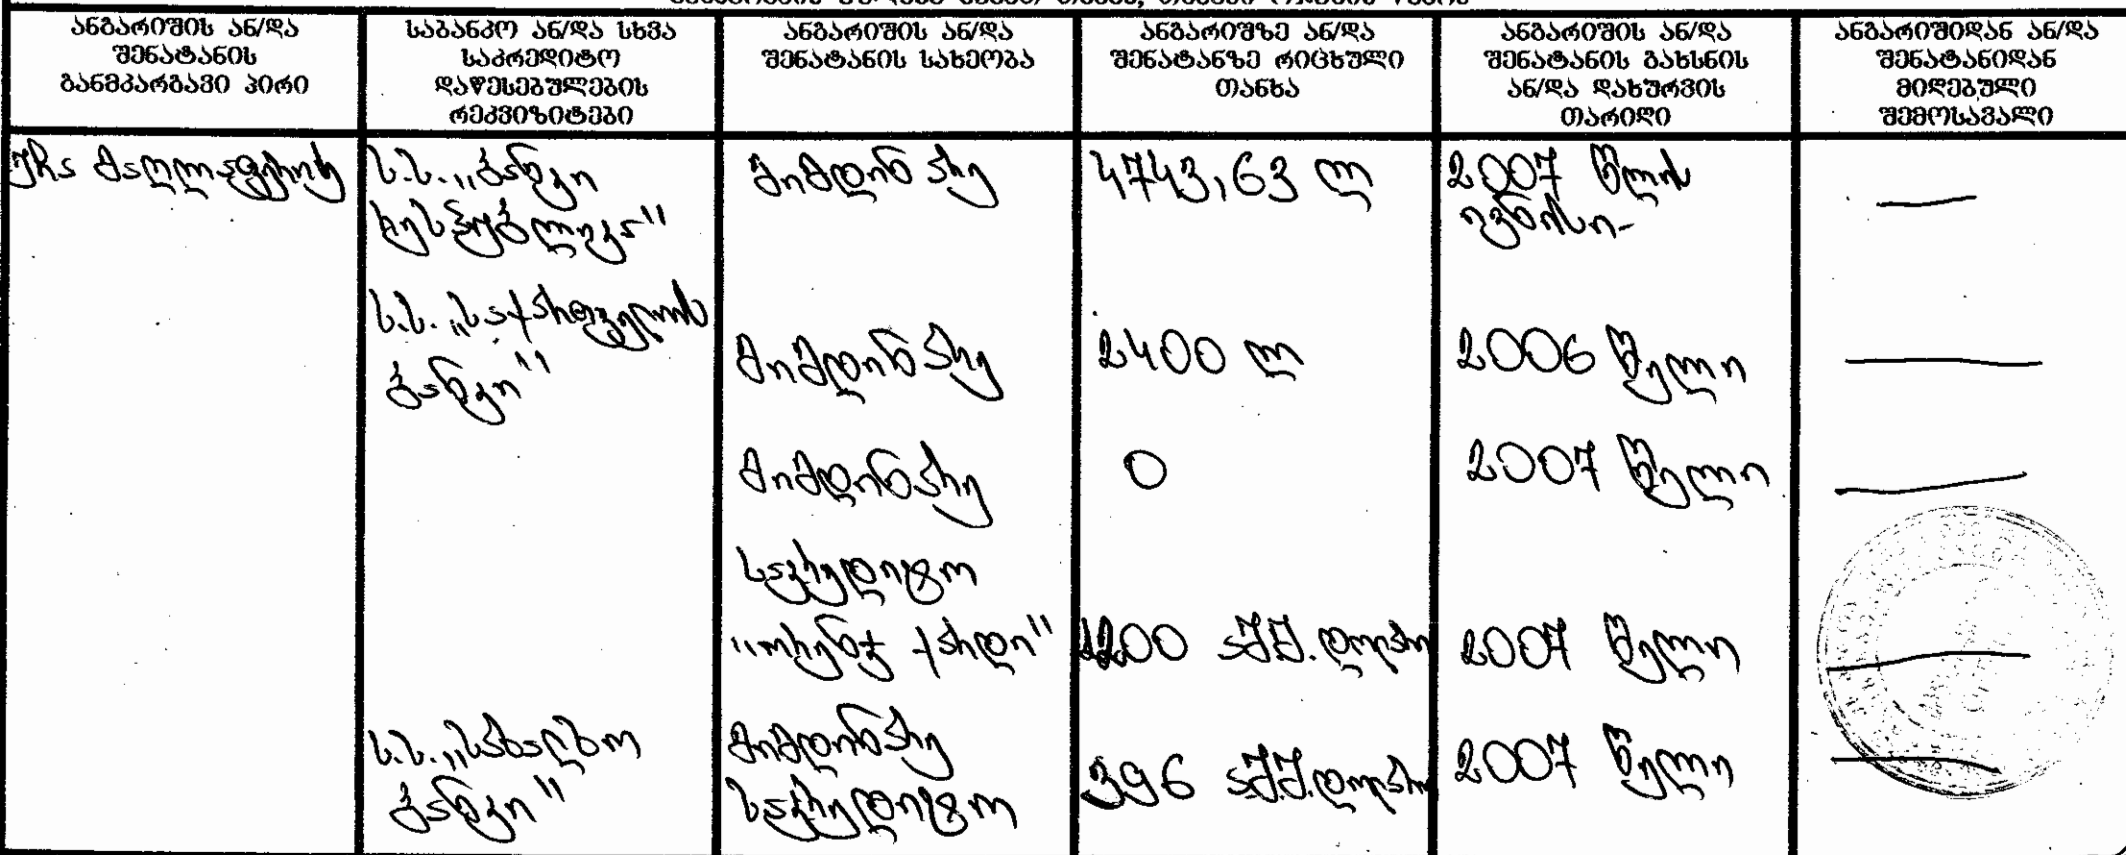 ანგარიშის ან/და
შენატანის
განმკარგავი პირი
საბანკო ან/და სხვა
საკრედიტო
დაწესებულების
რეკვიზიტები
ანგარიშის ან/და
შენატანის სახეობა
ანგარიშზე ან/და
შენატანზე რიცხული
თანხა
ანგარიშის ან/და
შენატანის გახსნის
ან/და დახურვის
თარიღი
ანგარიშიდან ან/და
შენატანიდან
მიღებული
შემოსავალი
უჩა
ს.ს. „ბანკი
რესპუბლიკა"
მიმდინარე
4743,63 ლ
2007 წლის
ივნისი-
—
ს.ს. „საქართველოს
ბანკი"
მიმდინარე
2400 ლ
2006 წელი
—
მიმდინარე
0
2007 წელი
—
საკრედიტო
"ორენჯ ქარდი"
აშშ. დოლარი
2007 წელი
—
ს.ს. „სახალხო
ბანკი"
მიმდინარე
საკრედიტო
396 აშშ. დოლარი
2007 წელი
—